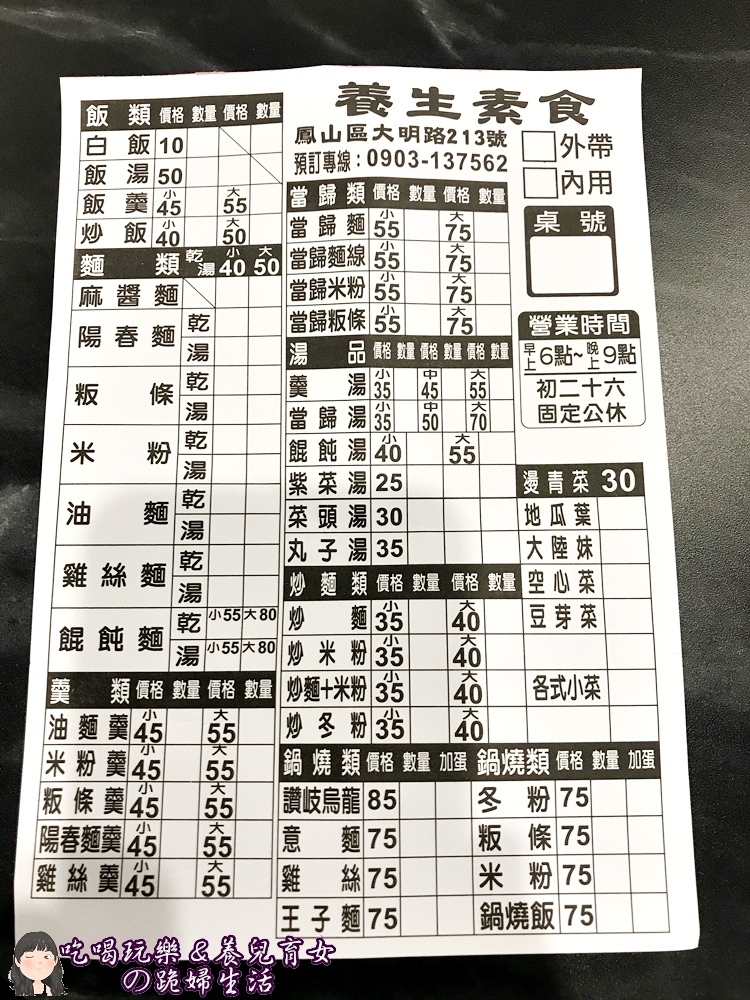 養生素食
鳳山區大明路213號
預訂專線：0903-137562
外帶
內用
桌號
營業時間
早上6點~晚上9點
初二十六
固定公休
飯類 價格 數量 價格 數量
白飯 10
飯湯 50
飯羹 小45 大55
炒飯 小40 大50
麵類 乾湯 小40 大50
麻醬麵
陽春麵 乾
湯
粄條 乾
湯
米粉 乾
湯
油麵 乾
湯
雞絲麵 乾
湯
餛飩麵 乾 小55 大80
湯 小55 大80
羹類 價格 數量 價格 數量
油麵羹 小45 大55
米粉羹 小45 大55
粄條羹 小45 大55
陽春麵羹 小45 大55
雞絲羹 小45 大55
當歸類 價格 數量 價格 數量
當歸麵 小55 大75
當歸麵線 小55 大75
當歸米粉 小55 大75
當歸粄條 小55 大75
湯品 價格 數量 價格 數量 價格 數量
羹湯 小35 中45 大55
當歸湯 小35 中50 大70
餛飩湯 小40 大55
紫菜湯 25
菜頭湯 30
丸子湯 35
炒麵類 價格 數量 價格 數量
炒麵 小35 大40
炒米粉 小35 大40
炒麵+米粉 小35 大40
炒冬粉 小35 大40
燙青菜 30
地瓜葉
大陸妹
空心菜
豆芽菜
各式小菜
鍋燒類 價格 數量 加蛋 鍋燒類 價格 數量 加蛋
讚岐烏龍 85 冬粉 75
意麵 75 粄條 75
雞絲 75 米粉 75
王子麵 75 鍋燒飯 75
吃喝玩樂&養兒育女
の跪婦生活